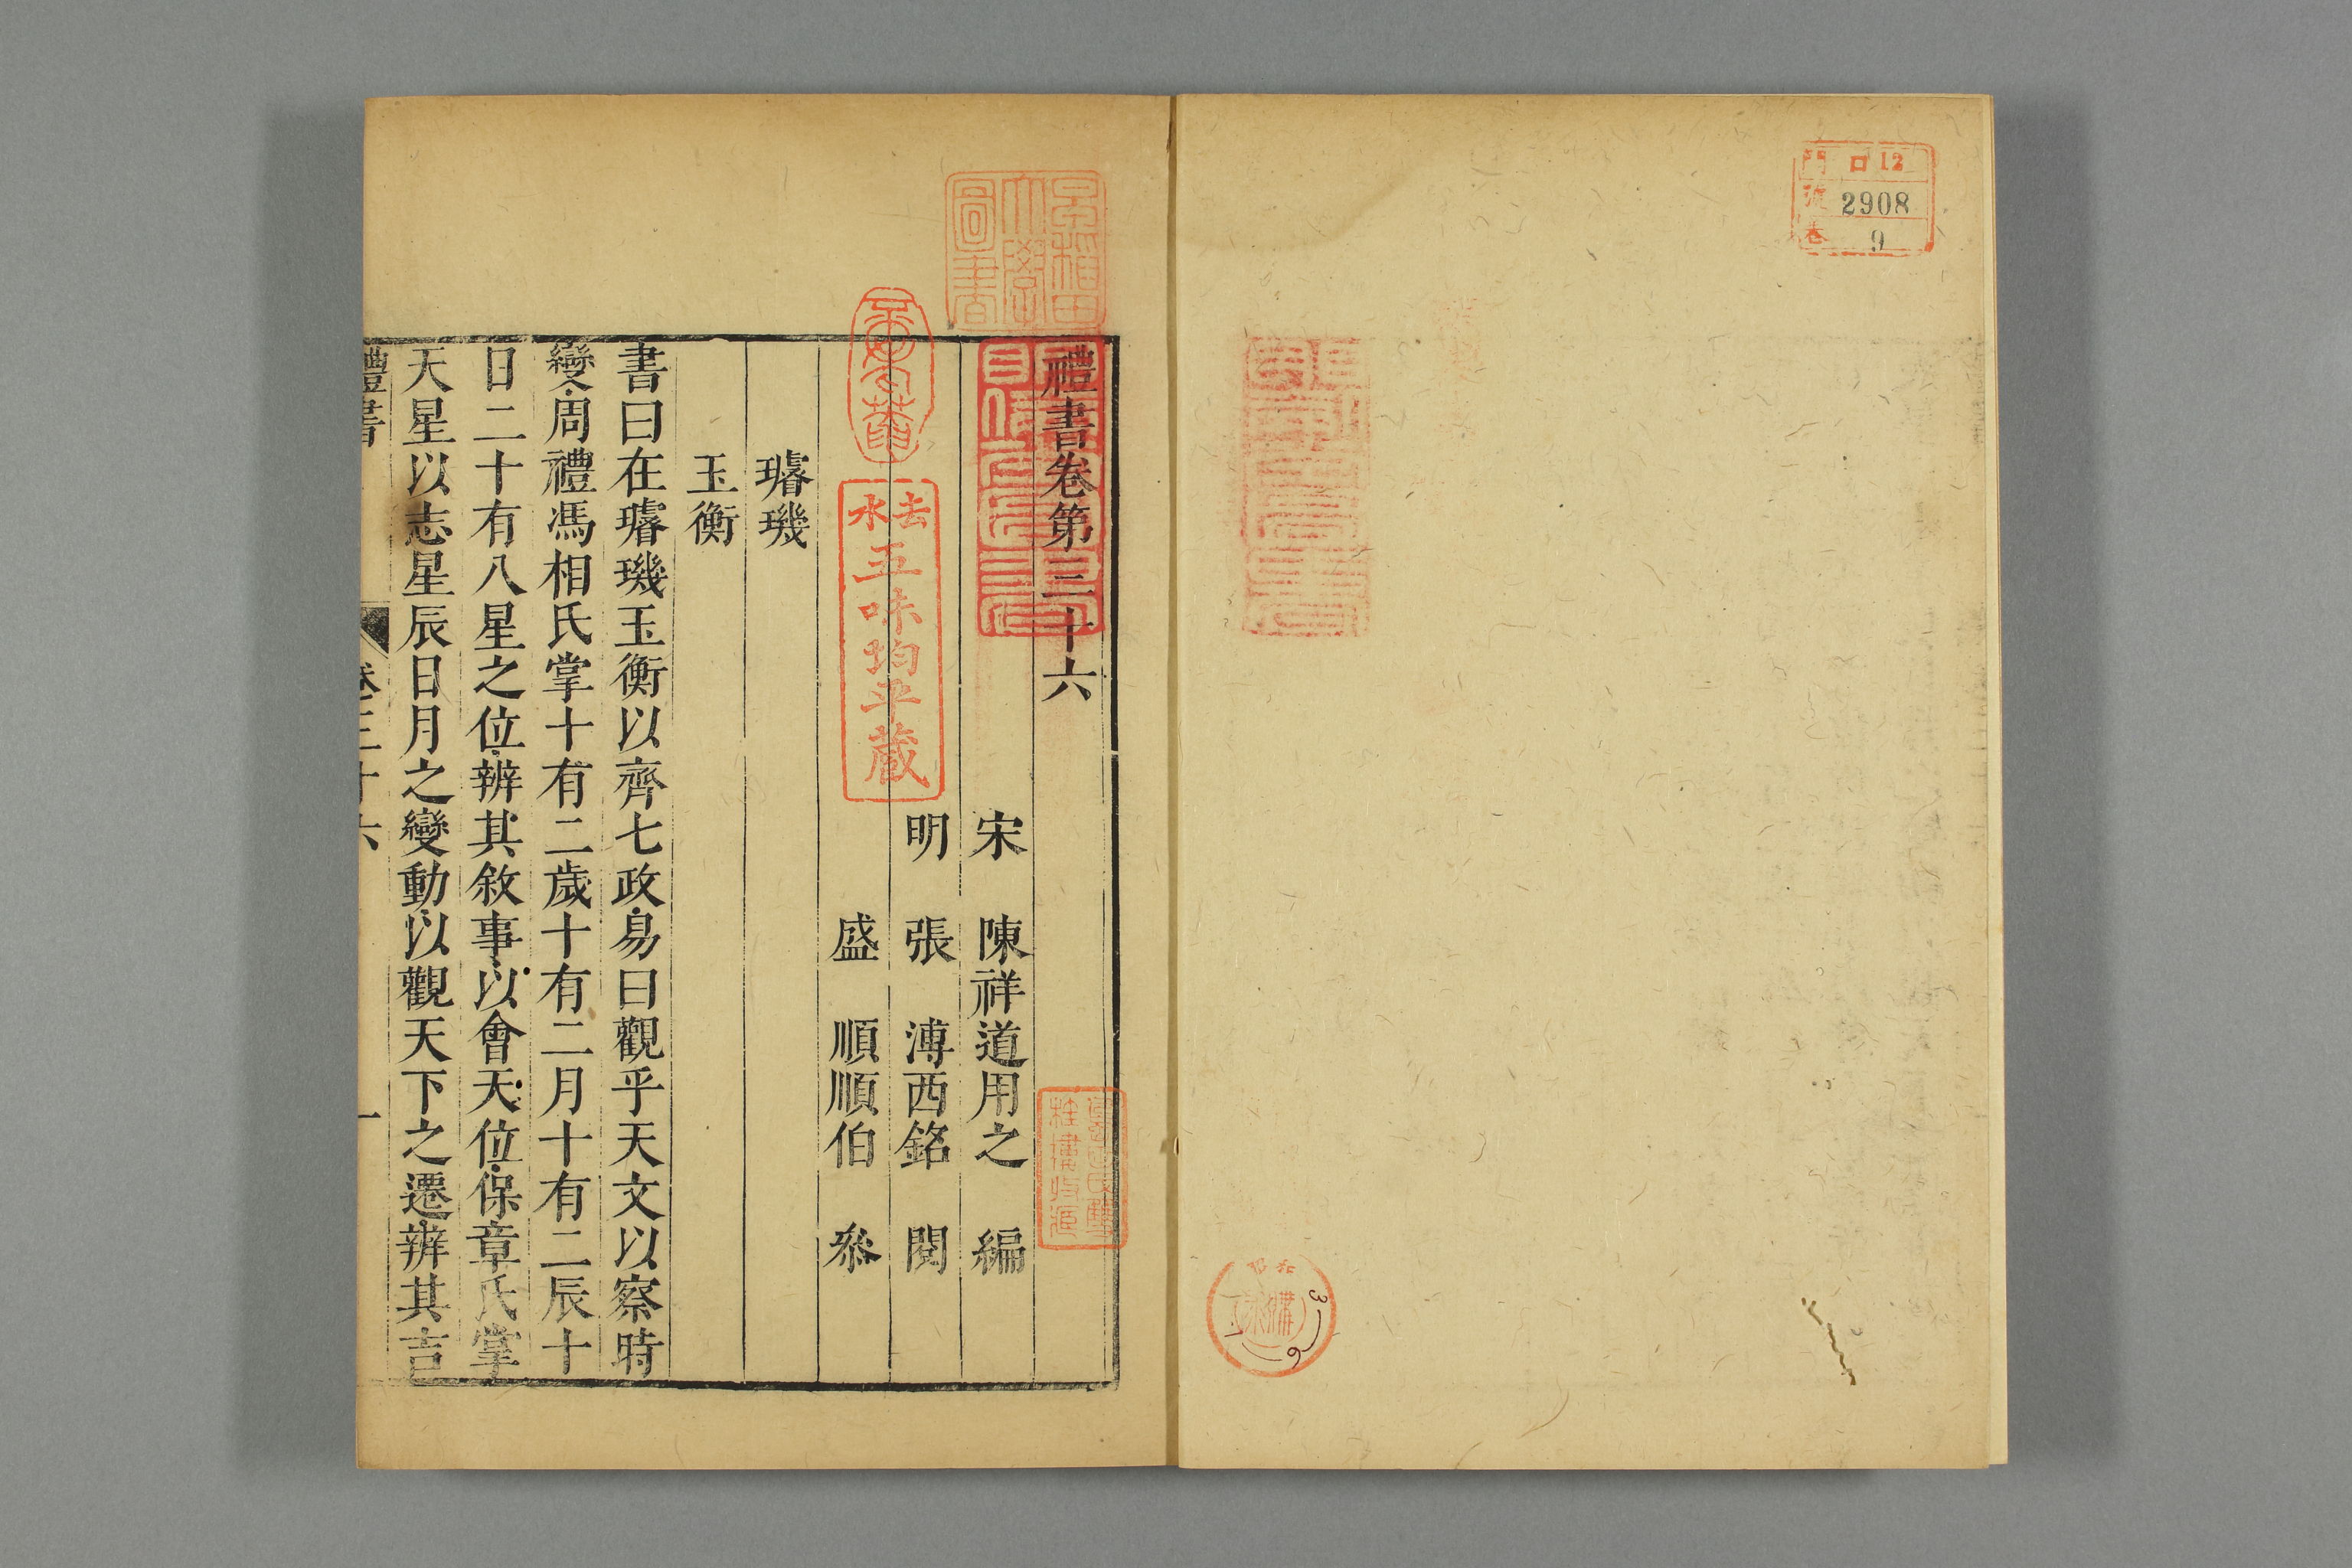 門 ロ12
號 2908
卷 9
早稲田大學圖書
禮書卷第三十六
宋 陳祥道用之 編
明 張溥西銘 閱
盛順順伯 叅
去水五味均平蔵
璿璣
玉衡
書曰在璿璣玉衡以齊七政易曰觀乎天文以察時
變周禮馮相氏掌十有二歲十有二月十有二辰十
日二十有八星之位辨其敘事以會天位保章氏掌
天星以志星辰日月之變動以觀天下之遷辨其吉
禮書 卷三十六 一
購求
3 6